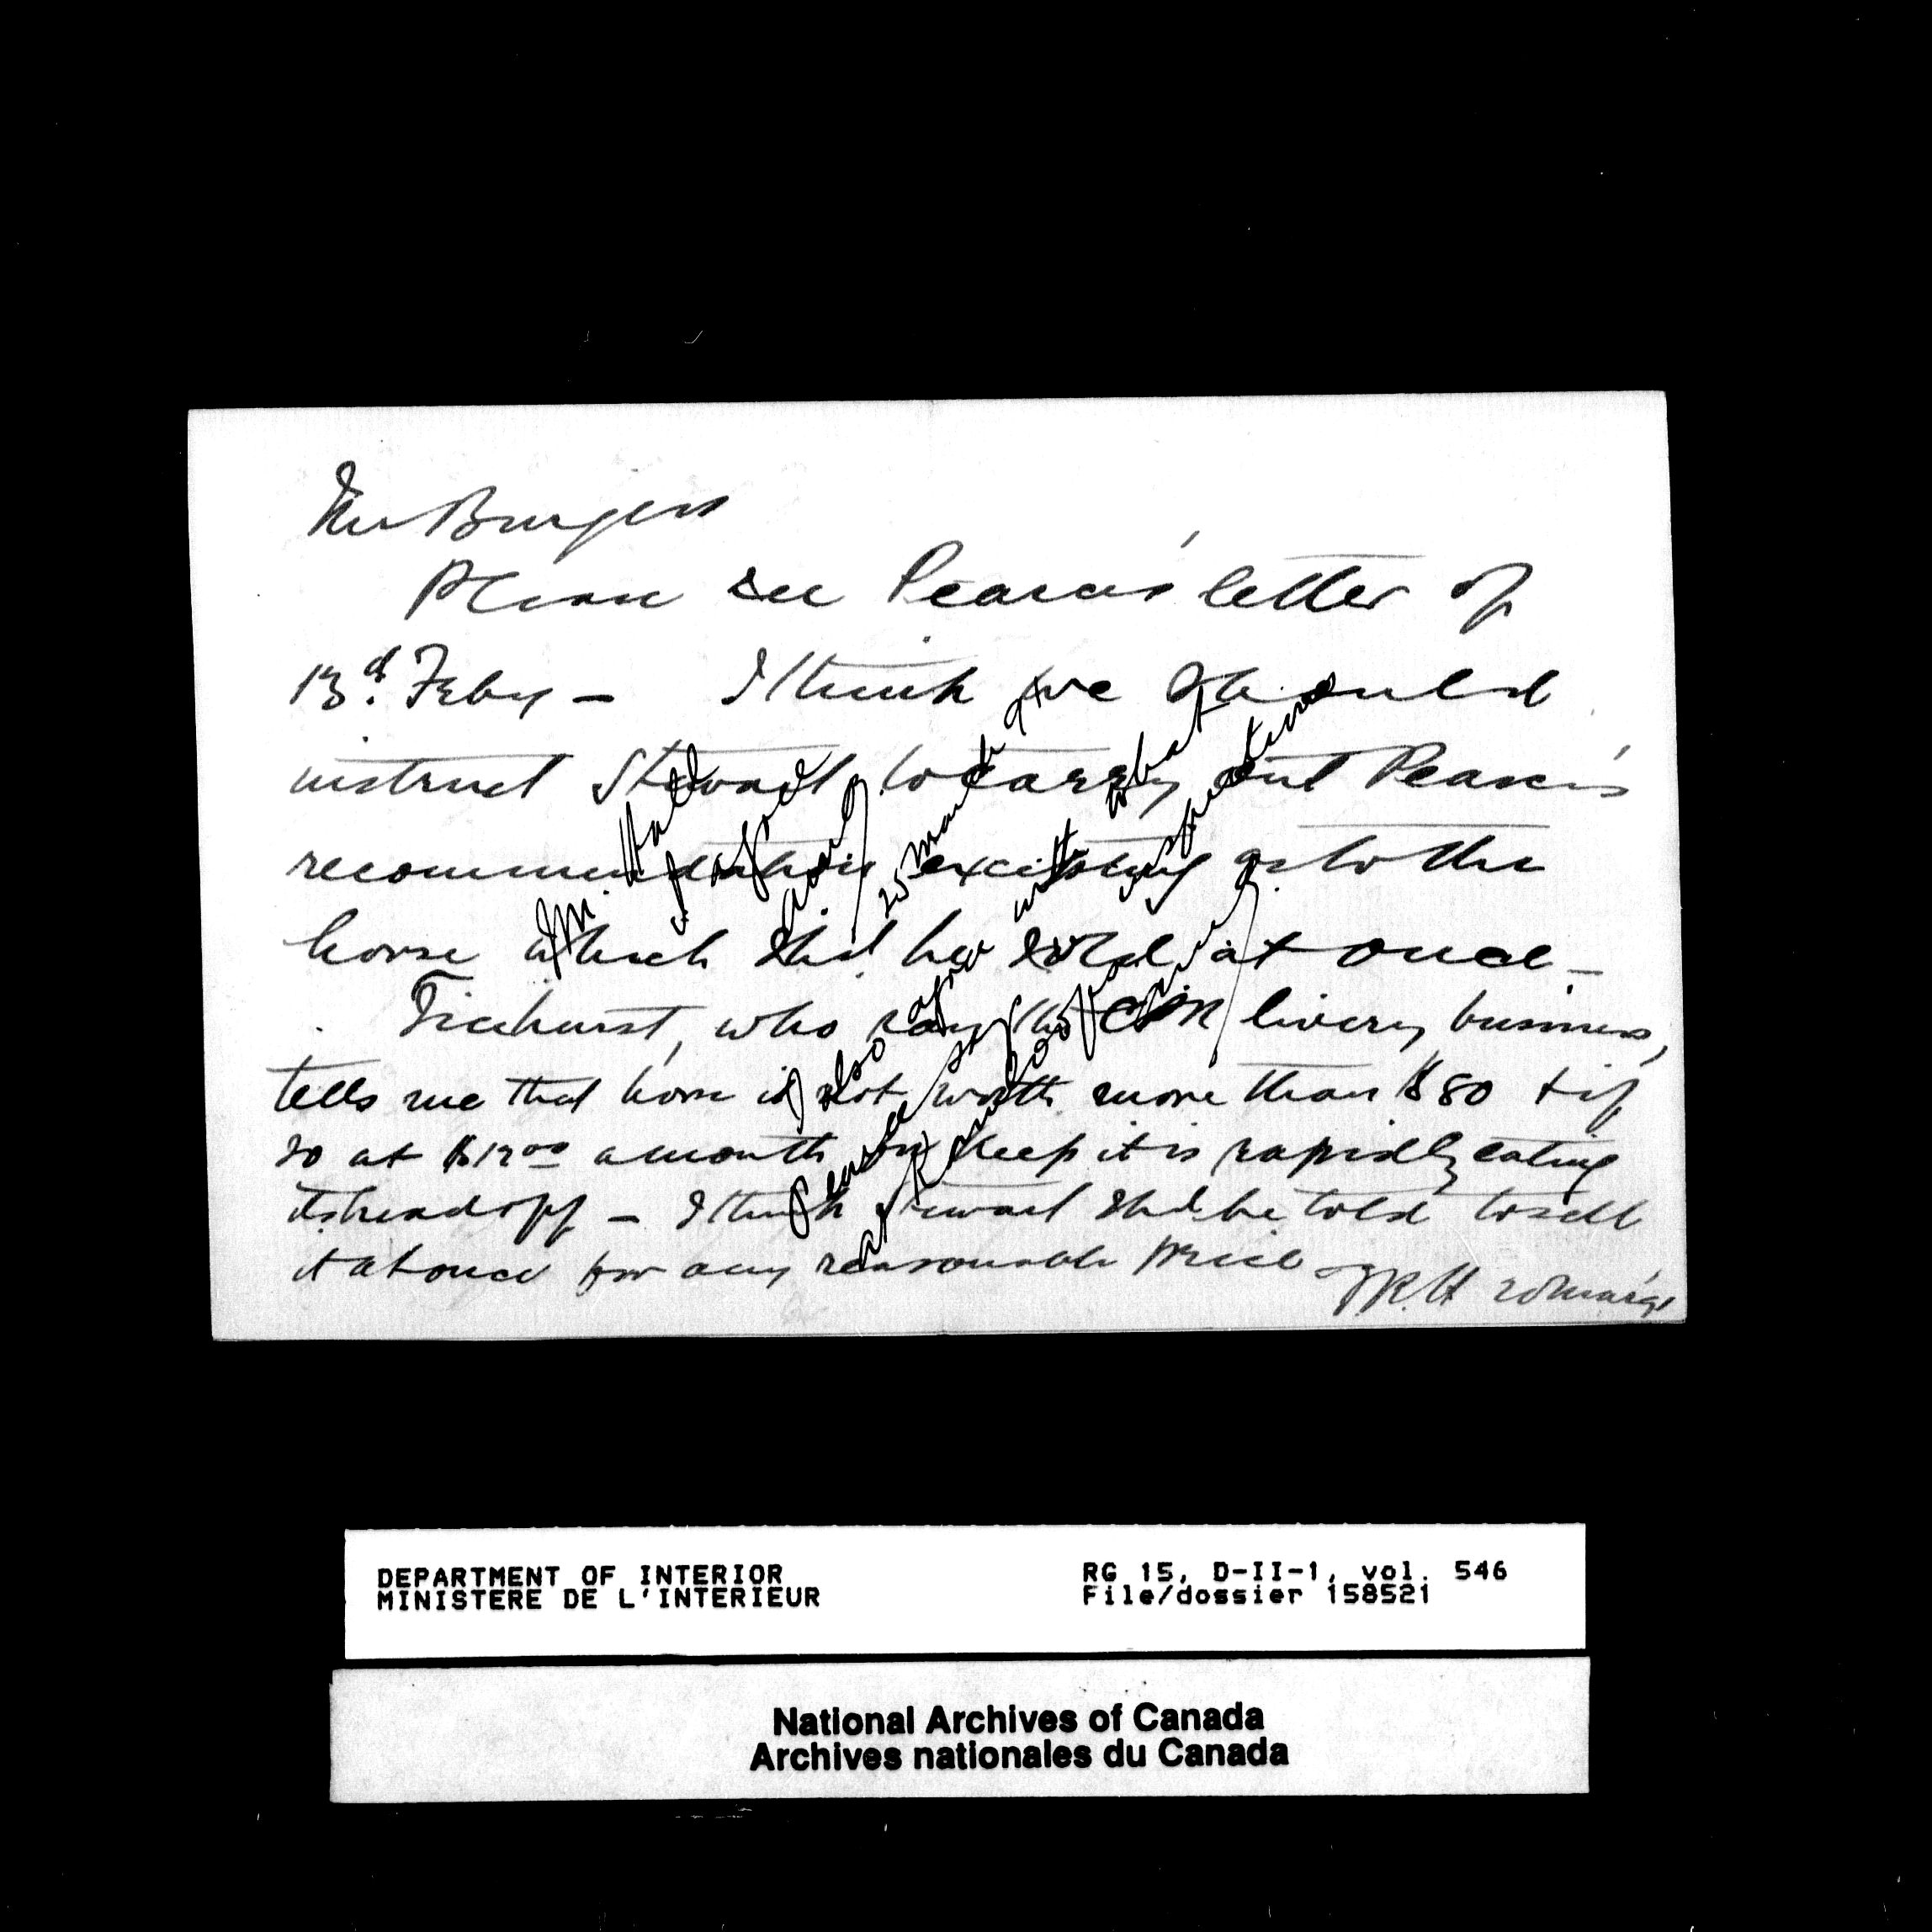 Mr Burgess
Please see Pearce's letter of
13th Feby — I think we should
instruct Stewart to carry out Pearce's
recommendation excepting as to the
horse which shd. be sold at once —
Ticehurst, who ran the livery business,
tells me that horse is not worth more than $80 & if
so at $12 00 a month for keep it is rapidly eating
its head off — I think Stewart shd be told to sell
it at once for any reasonable price
Mr. Hall
25 March 91
also agree with what
Please
T.R.H 20 Mar 91
DEPARTMENT OF INTERIOR
MINISTERE DE L'INTERIEUR
RG 15, D-II-1, vol. 546
File/dossier 158521
National Archives of Canada
Archives nationales du Canada